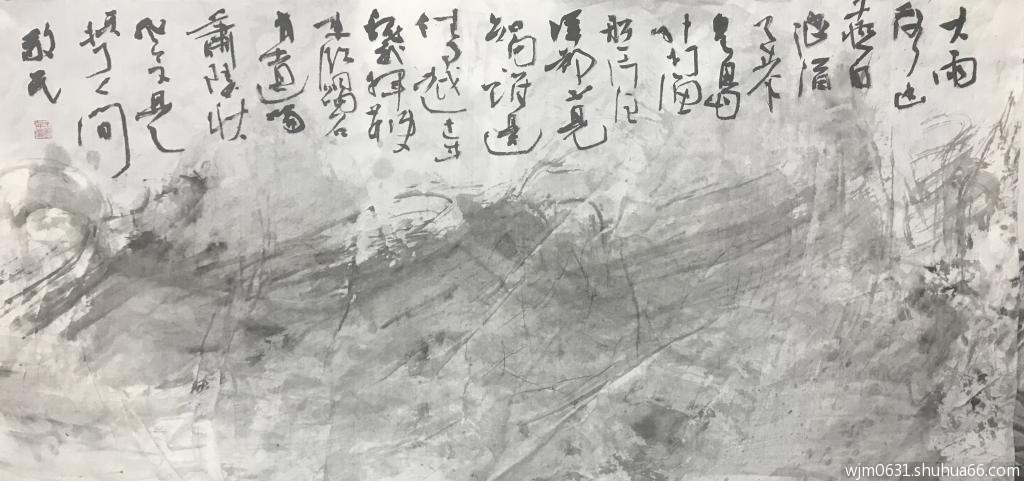 大雨
落幽
燕白
浪滔
天秦
皇島
外打漁
船一片汪
洋都不見
知向誰邊
往事越千年
魏武揮鞭
東臨碣石
有遺篇
蕭瑟秋
風今又是
換了人間
敬民
wjm0631.shuhua66.com